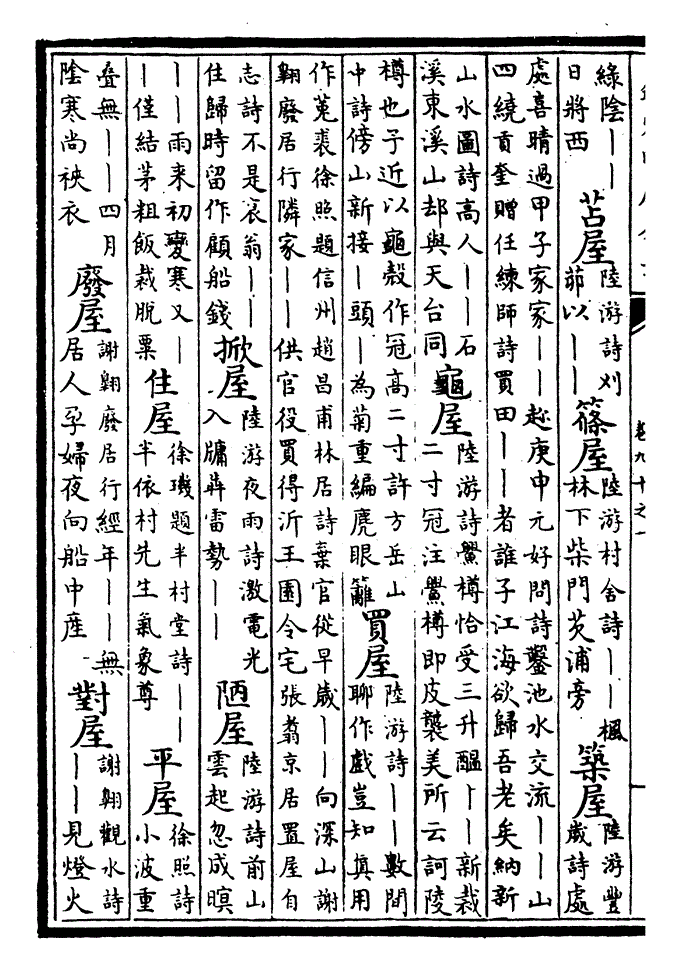 綠陰〡〡
日將西
苫屋
陸游詩刈
茆以〡〡
篠屋
陸游村舍詩〡〡楓
林下柴門芡浦旁
築屋
陸游豐
歲詩處
處喜晴過甲子家家〡〡趂庚申元好問詩鑿池水交流〡〡山
四繞貢奎贈任練師詩買田〡〡者誰子江海欲歸吾老矣納新
山水圖詩高人〡〡石
溪東溪山却與天台同
龜屋
陸游詩鸎樽恰受三升醖〡〡新裁
二寸冠注鸎樽即皮襲美所云訶陵
樽也予近以龜殼作冠高二寸許方岳山
中詩傍山新接〡頭〡為菊重編麂眼籬
買屋
陸游詩〡〡數間
聊作戲豈知真用
作菟裘徐照題信州趙昌甫林居詩棄官從早歲〡〡向深山謝
翺廢居行隣家〡〡供官役買得沂王園令宅張翥京居置屋自
志詩不是衰翁〡〡
住歸時留作顧船錢
掀屋
陸游夜雨詩激電光
入牖犇雷勢〡〡
陋屋
陸游詩前山
雲起忽成暝
〡〡雨来初變寒又〡
〡僅結茅粗飯裁脫粟
住屋
徐璣題半村堂詩〡〡
半依村先生氣象尊
平屋
徐照詩
小波重
疊無〡〡四月
陰寒尚裌衣
廢屋
謝翺廢居行經年〡〡無
居人孕婦夜向船中産
對屋
謝翺觀水詩
〡〡見燈火
卷九十之一